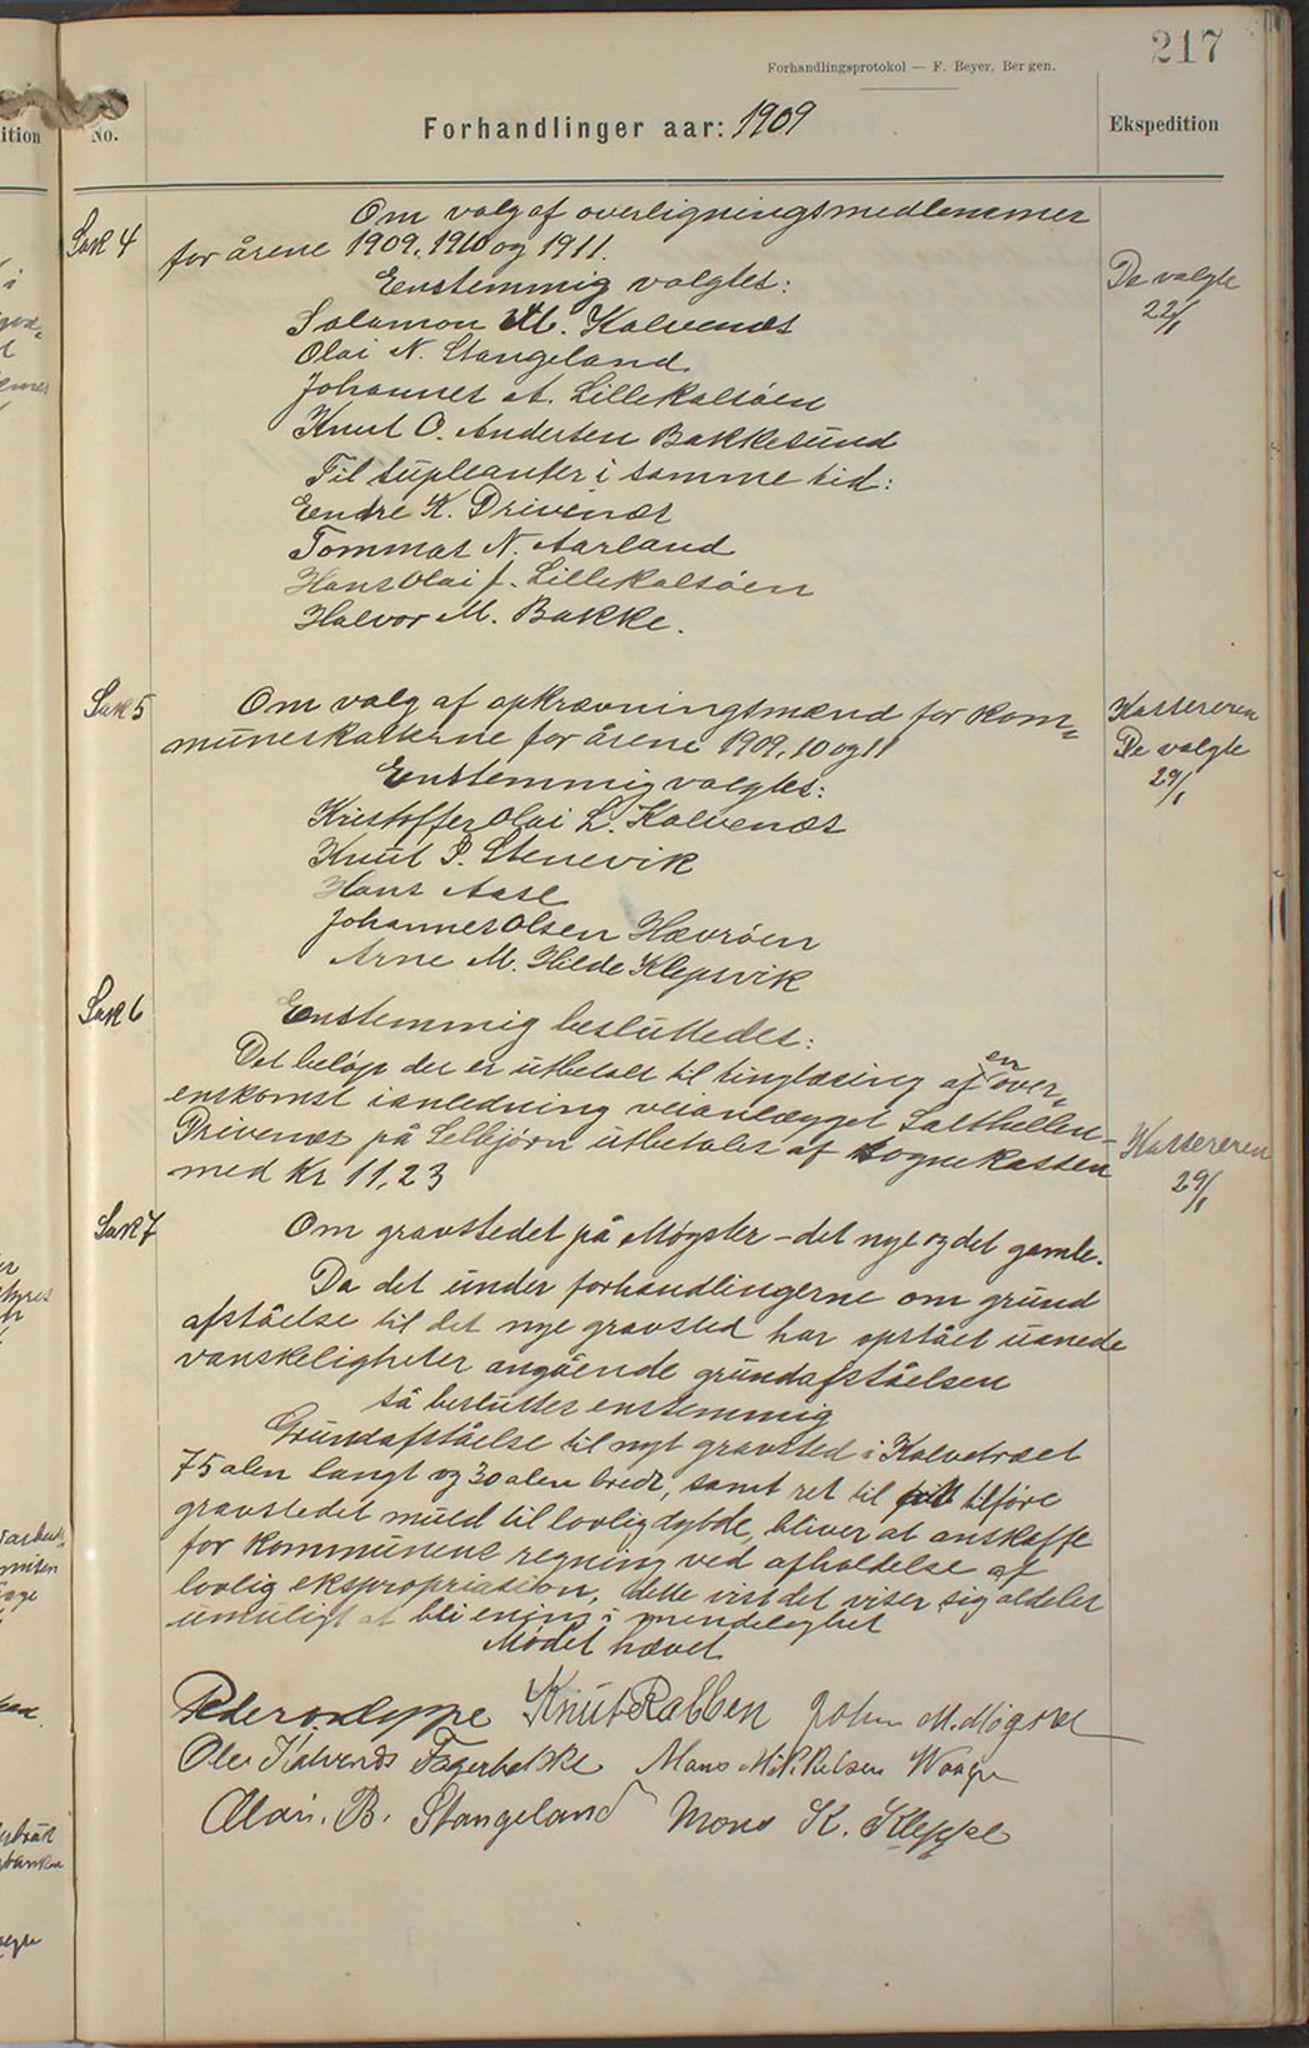 217
Forhandlingsprotokol — F. Beyer, Bergen.
No.
Forhandlinger aar: 1909
Ekspedition
ition
Sak 4
Om valg af overligningsmedlemmer
for årene 1909, 1910 og 1911.
Enstemmig valgtes:
De valgte
22/1
Salamon M. Kalvenæs
Olai N. Stangeland
Johannes A. Lillekalsøen
Knut O. Andersen Bakkesund
Til supleanter i samme tid:
Endre K. Drivenæs
Tommas N. Aarland
Hans Olai J. Lillekalsøen
Halvor M. Bakke.
Sak 5
Om valg af opkrævningsmænd for kom„
muneskatterne for årene 1909, 10 og 11
Kassereren
De valgte
29/1
Enstemmig valgtes:
Kristoffer Olai L. Kalvenæs
Knut P. Stenevik
Hans Aase
Johannes Olsen Hævrøen
Arne M. Hilde Klepsvik
Sak 6
Enstemmig besluttedes:
Det beløp der er utbetalt til tinglæsing af en over„
enskomst i anledning veianlægget Salthellen-
Drivenes på Selbjørn utbetales af sognekassen
med Kr 11,23
Kassereren
29/1
Sak 7
Om gravstedet på Møgster - det nye og det gamle.
Da det under forhandlingerne om grund
afståelse til det nye gravsted har opstået uanede
vanskeligheter angående grundafståelsen
så besluttes enstemmig
Grundafståelse til nyt gravsted i Kalvetræet
75 alen langt og 30 alen bredt, samt ret til tilføre
gravstedet muld til lovlig dybde, bliver at anskaffe
for kommunens regning ved afholdelse af
lovlig ekspropriation, dette vist det viser sig aldeles
umuligt at bli ening i mindelighet
Mødet hævet
Peder O Kleppe Knut Rabben John M. Møgster
Ole Kalvenes Fagerbakke Mons Mikkelsen Waage
Olai. B. Stangeland Mons K. Kleppe